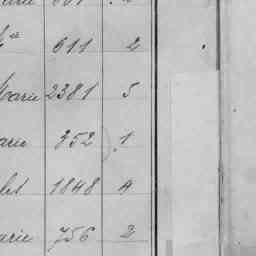 611 2
Marie 2381 5
arie 352 1
let 1848 4
arie 756 2